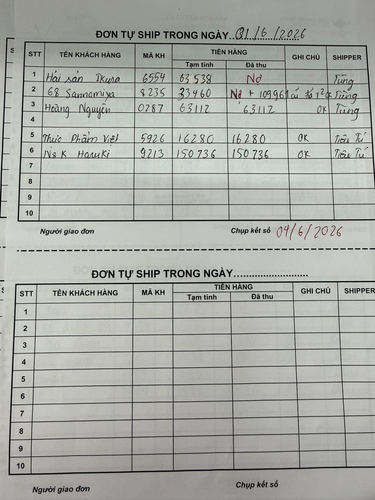 ĐƠN TỰ SHIP TRONG NGÀY..01/6/2026
STT TÊN KHÁCH HÀNG MÃ KH TIỀN HÀNG GHI CHÚ SHIPPER
Tạm tính Đã thu
1 Hải sản Ikura 6554 63 538 Nợ Tùng
2 68 Sannomiya 8235 33460 Nợ + 109961 Tùng
3 Hoàng Nguyên 0287 63112 63112 OK Tùng
4
5 Thực Phẩm Việt 5926 16280 16280 OK Tiểu Tí
6 N&K Haruki 9213 150 736 150 736 OK Tiểu Tí
7
8
9
10
Người giao đơn Chụp kết sổ 04/6/2026
ĐƠN TỰ SHIP TRONG NGÀY..........................
STT TÊN KHÁCH HÀNG MÃ KH TIỀN HÀNG GHI CHÚ SHIPPER
Tạm tính Đã thu
1
2
3
4
5
6
7
8
9
10
Người giao đơn Chụp kết sổ